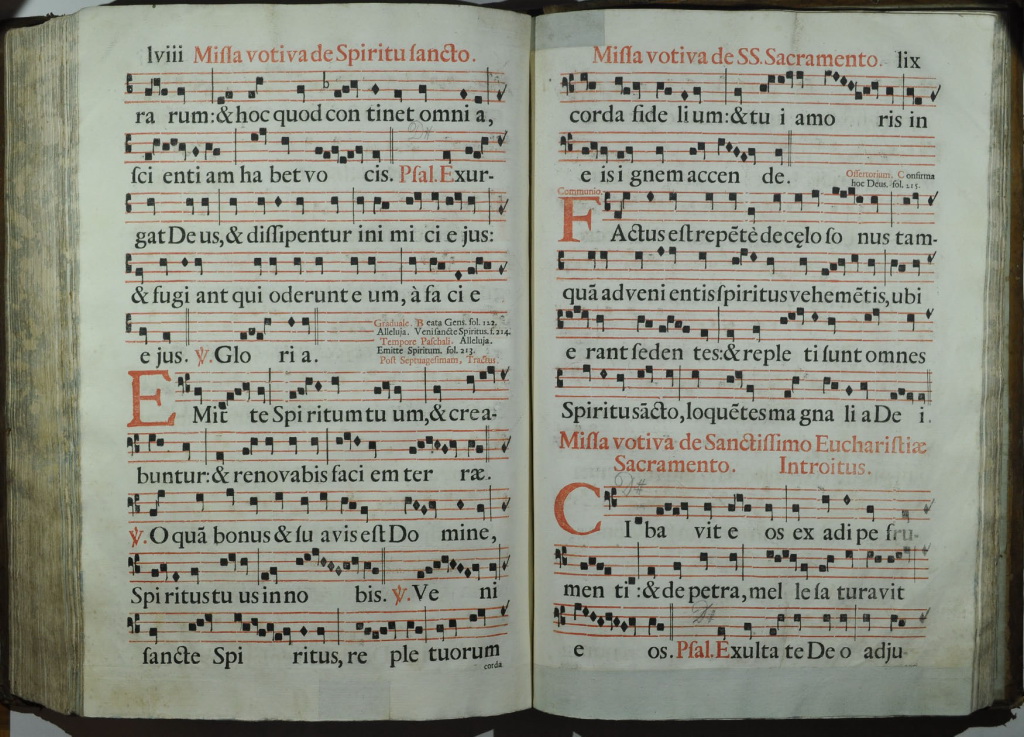 lviii Miſſa votiva de Spiritu ſancto.
ra rum:&hoc quod con tinet omni a,
ſci enti am ha bet vo cis. Pſal. Exur-
gat De us,& diſſipentur ini mi ci e jus:
& fugi ant qui oderunt e um, à fa ci e
e jus. ℣. Glo ri a.
Graduale. B eata Gens. fol. 122.
Alleluja. Veni ſancte Spiritus. f. 214.
Tempore Paſchali. Alleluja.
Emitte Spiritum. fol. 213.
Poſt Septuageſimam, Tractus.
E Mit te Spi ritum tu um,& crea-
buntur:& renovabis faci em ter ræ.
℣. O quā bonus & ſu avis eſt Do mine,
Spi ritus tu us in no bis. ℣. Ve ni
ſancte Spi ritus, re ple tuorum
corda
Miſſa votiva de SS. Sacramento. lix
corda fide li um:& tu i amo ris in
e is i gnem accen de.
Offertorium. C onfirma
hoc Deus. fol. 215.
Communio.
F Actus eſt repētè de cęlo ſo nus tam-
quā ad veni entis ſpiritus vehemētis, ubi
e rant ſeden tes:& reple ti ſunt omnes
Spiritu sācto, loquētes ma gna li a De i.
Miſſa votiva de Sanctiſſimo Euchariſtiæ
Sacramento. Introitus.
C I ba vit e os ex adi pe fru-
men ti :& de petra, mel le ſa turavit
e os. Pſal. Exulta te De o adju-